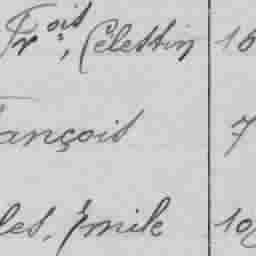 Fr.ois, Célestin 16
ançois 7
les, Emile 10